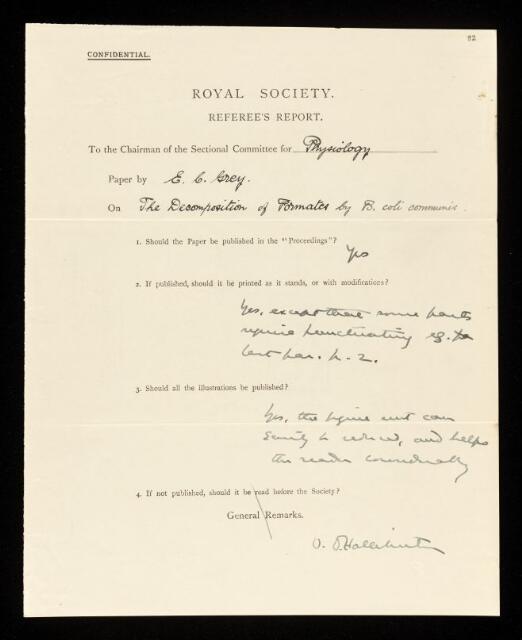 82
CONFIDENTIAL.
ROYAL SOCIETY.
REFEREE'S REPORT.
To the Chairman of the Sectional Committee for Physiology
Paper by E. C. Grey.
On The Decomposition of Formates by B. coli communis.
1. Should the Paper be published in the "Proceedings"?
Yes
2. If published, should it be printed as it stands, or with modifications?
Yes, except that some parts
require punctuating eg.
last par. p. 2.
3. Should all the illustrations be published?
Yes, the figure
and helps
the reader considerably
4. If not published, should it be read before the Society?
General Remarks.